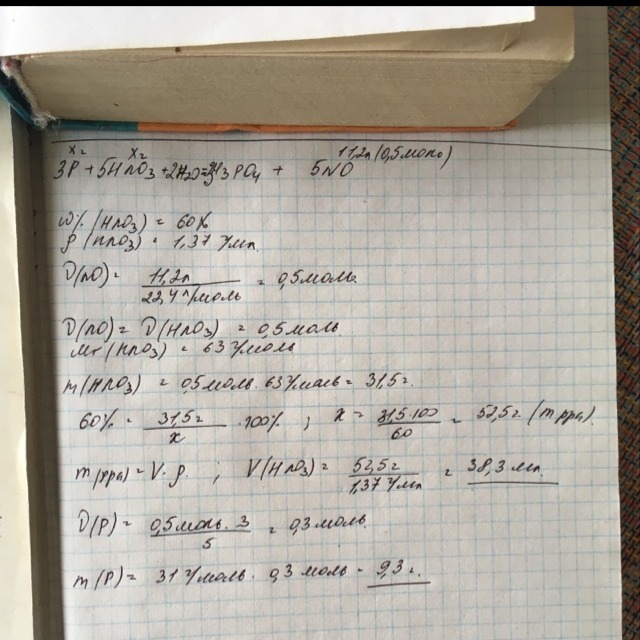 x г x г 11,2л (0,5 моль)
3P + 5HNO₃ + 2H₂O = 3H₃PO₄ + 5NO
W% (HNO₃) = 60%
ρ (HNO₃) = 1,37 г/мл
ν(NO) = 11,2л / 22,4 л/моль = 0,5 моль.
ν(NO) = ν(HNO₃) = 0,5 моль.
Mr (HNO₃) = 63 г/моль
m(HNO₃) = 0,5 моль · 63 г/моль = 31,5 г.
60% = 31,5 г / x · 100% ; x = 31,5 · 100 / 60 = 52,5 г (m рра).
m(рра) = V · ρ. ; V(HNO₃) = 52,5 г / 1,37 г/мл = 38,3 мл.
ν(P) = 0,5 моль · 3 / 5 = 0,3 моль.
m(P) = 31 г/моль · 0,3 моль = 9,3 г.